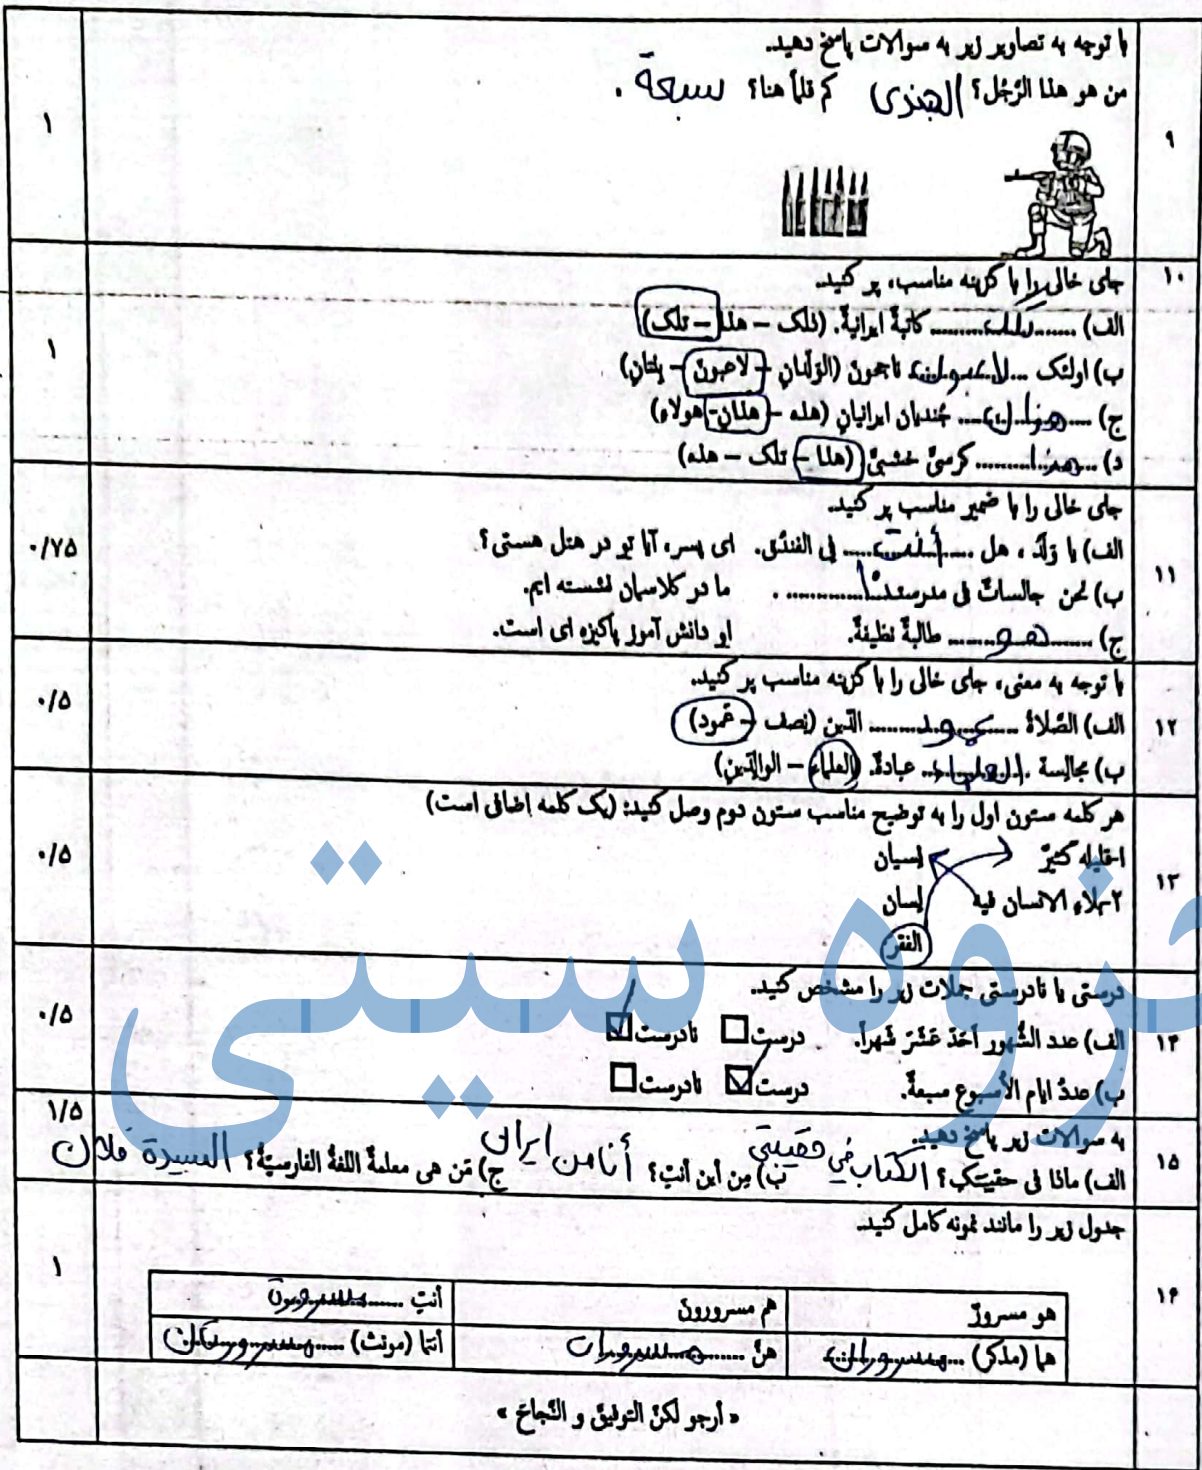 ۹
با توجه به تصاویر زیر به سوالات پاسخ دهید.
من هو هذا الرَّجُل؟ الجندی کم قلماً هنا؟ سبعة .
۱
۱۰
جای خالی را با گزینه مناسب، پر کنید.
الف) ...... تلک ...... کاتبةٌ ایرانیةٌ. (ذلک – هذا – تلک)
ب) اولئک ... لاعبون ... ناجحونَ (الوَلَدانِ – لاعبونَ – بِنتانِ)
ج) .... هذان .... جُندیان ایرانیانِ (هذه – هذان – هولاء)
د) ... هذا ......... کرسیٌّ خشبیٌّ (هذا – تلک – هذه)
۱
۱۱
جای خالی را با ضمیر مناسب پر کنید.
الف) یا وَلَدُ ، هل ...... أنتَ ...... فی الفندُقِ. ای پسر، آیا تو در هتل هستی؟
ب) نحن جالساتٌ فی مدرستنا ............ . ما در کلاسمان نشسته ایم.
ج) ...... هو ...... طالبةٌ نظیفةٌ. او دانش آموز پاکیزه ای است.
۰/۷۵
۱۲
با توجه به معنی، جای خالی را با گزینه مناسب پر کنید.
الف) الصَّلاةُ ...... عمود ...... الدّینِ (نِصف – عَمود)
ب) مجالِسة ..العلماء.. عبادةٌ. (العلماءِ – الوالدَینِ)
۰/۵
۱۳
هر کلمه ستون اول را به توضیح مناسب ستون دوم وصل کنید: (یک کلمه اضافی است)
۱-قلیله کثیرٌ نسیان
۲-بلاء الانسان فیه لسان
الفقر
۰/۵
۱۴
درستی یا نادرستی جملات زیر را مشخص کنید.
الف) عدد الشُّهور أحَدَ عَشَرَ شَهراً. درست نادرست
ب) عددُ ایام الأُسبوع سبعةٌ. درست نادرست
۰/۵
۱۵
به سوالات زیر پاسخ دهید.
الف) ماذا فی حقیبتِکِ؟ الکتاب فی حقیبتی ب) مِن أین أنتِ؟ أنا من ایران ج) مَن هی معلمةُ اللغةُ الفارسیّةُ؟ السیدة فلان
۱/۵
۱۶
جدول زیر را مانند نمونه کامل کنید.
هو مسرورٌ هم مسرورونَ أنتِ ......
هما (مذکر) ... مسروران هنَّ ...... مسرورات أنتما (مونث) ..... مسرورتان
۱
« أرجو لکنّ التوفیقَ و النَّجاحَ »
زوه سیتی